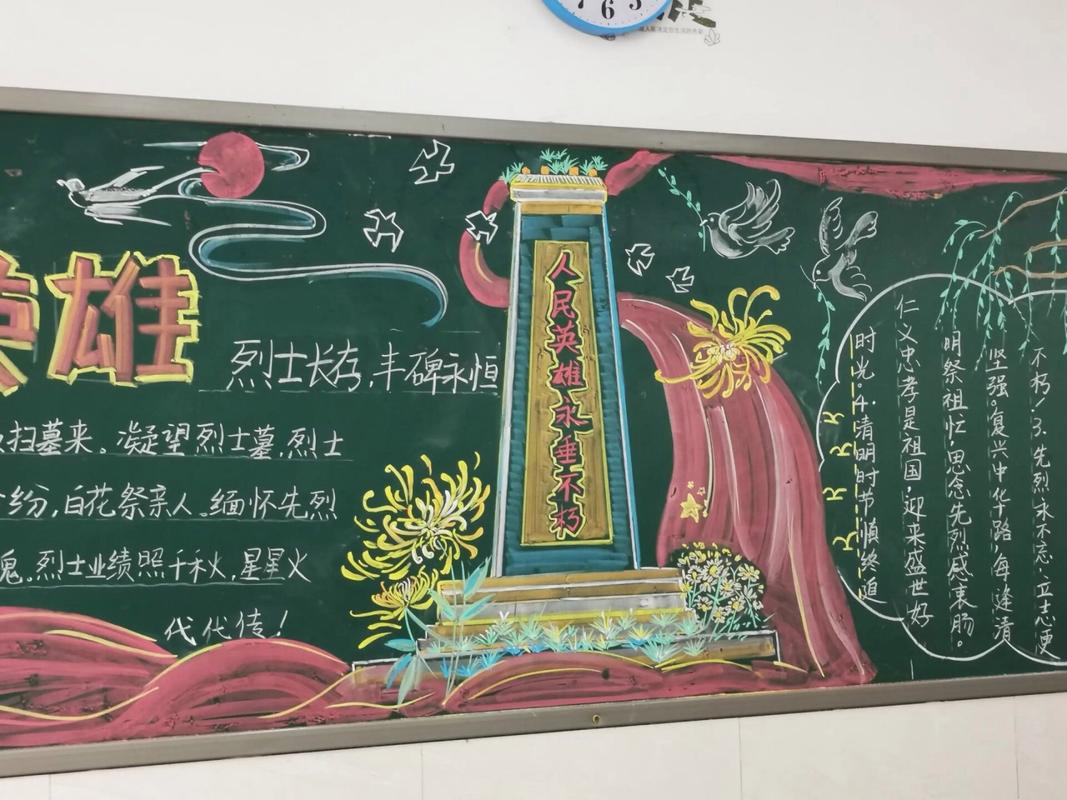 7 6 5
英雄
烈士长存,丰碑永恒
扫墓来。凝望烈士墓,烈士
纷,白花祭亲人。缅怀先烈
魂,烈士业绩照千秋,星星火
代代传!
人民英雄永垂不朽
不朽!3.先烈永不忘,立志便
坚强,复兴中华路,每逢清
明祭祖忙,思念先烈感衷肠。
仁义忠孝是祖国,迎来盛世好
时光。4.清明时节慎终追